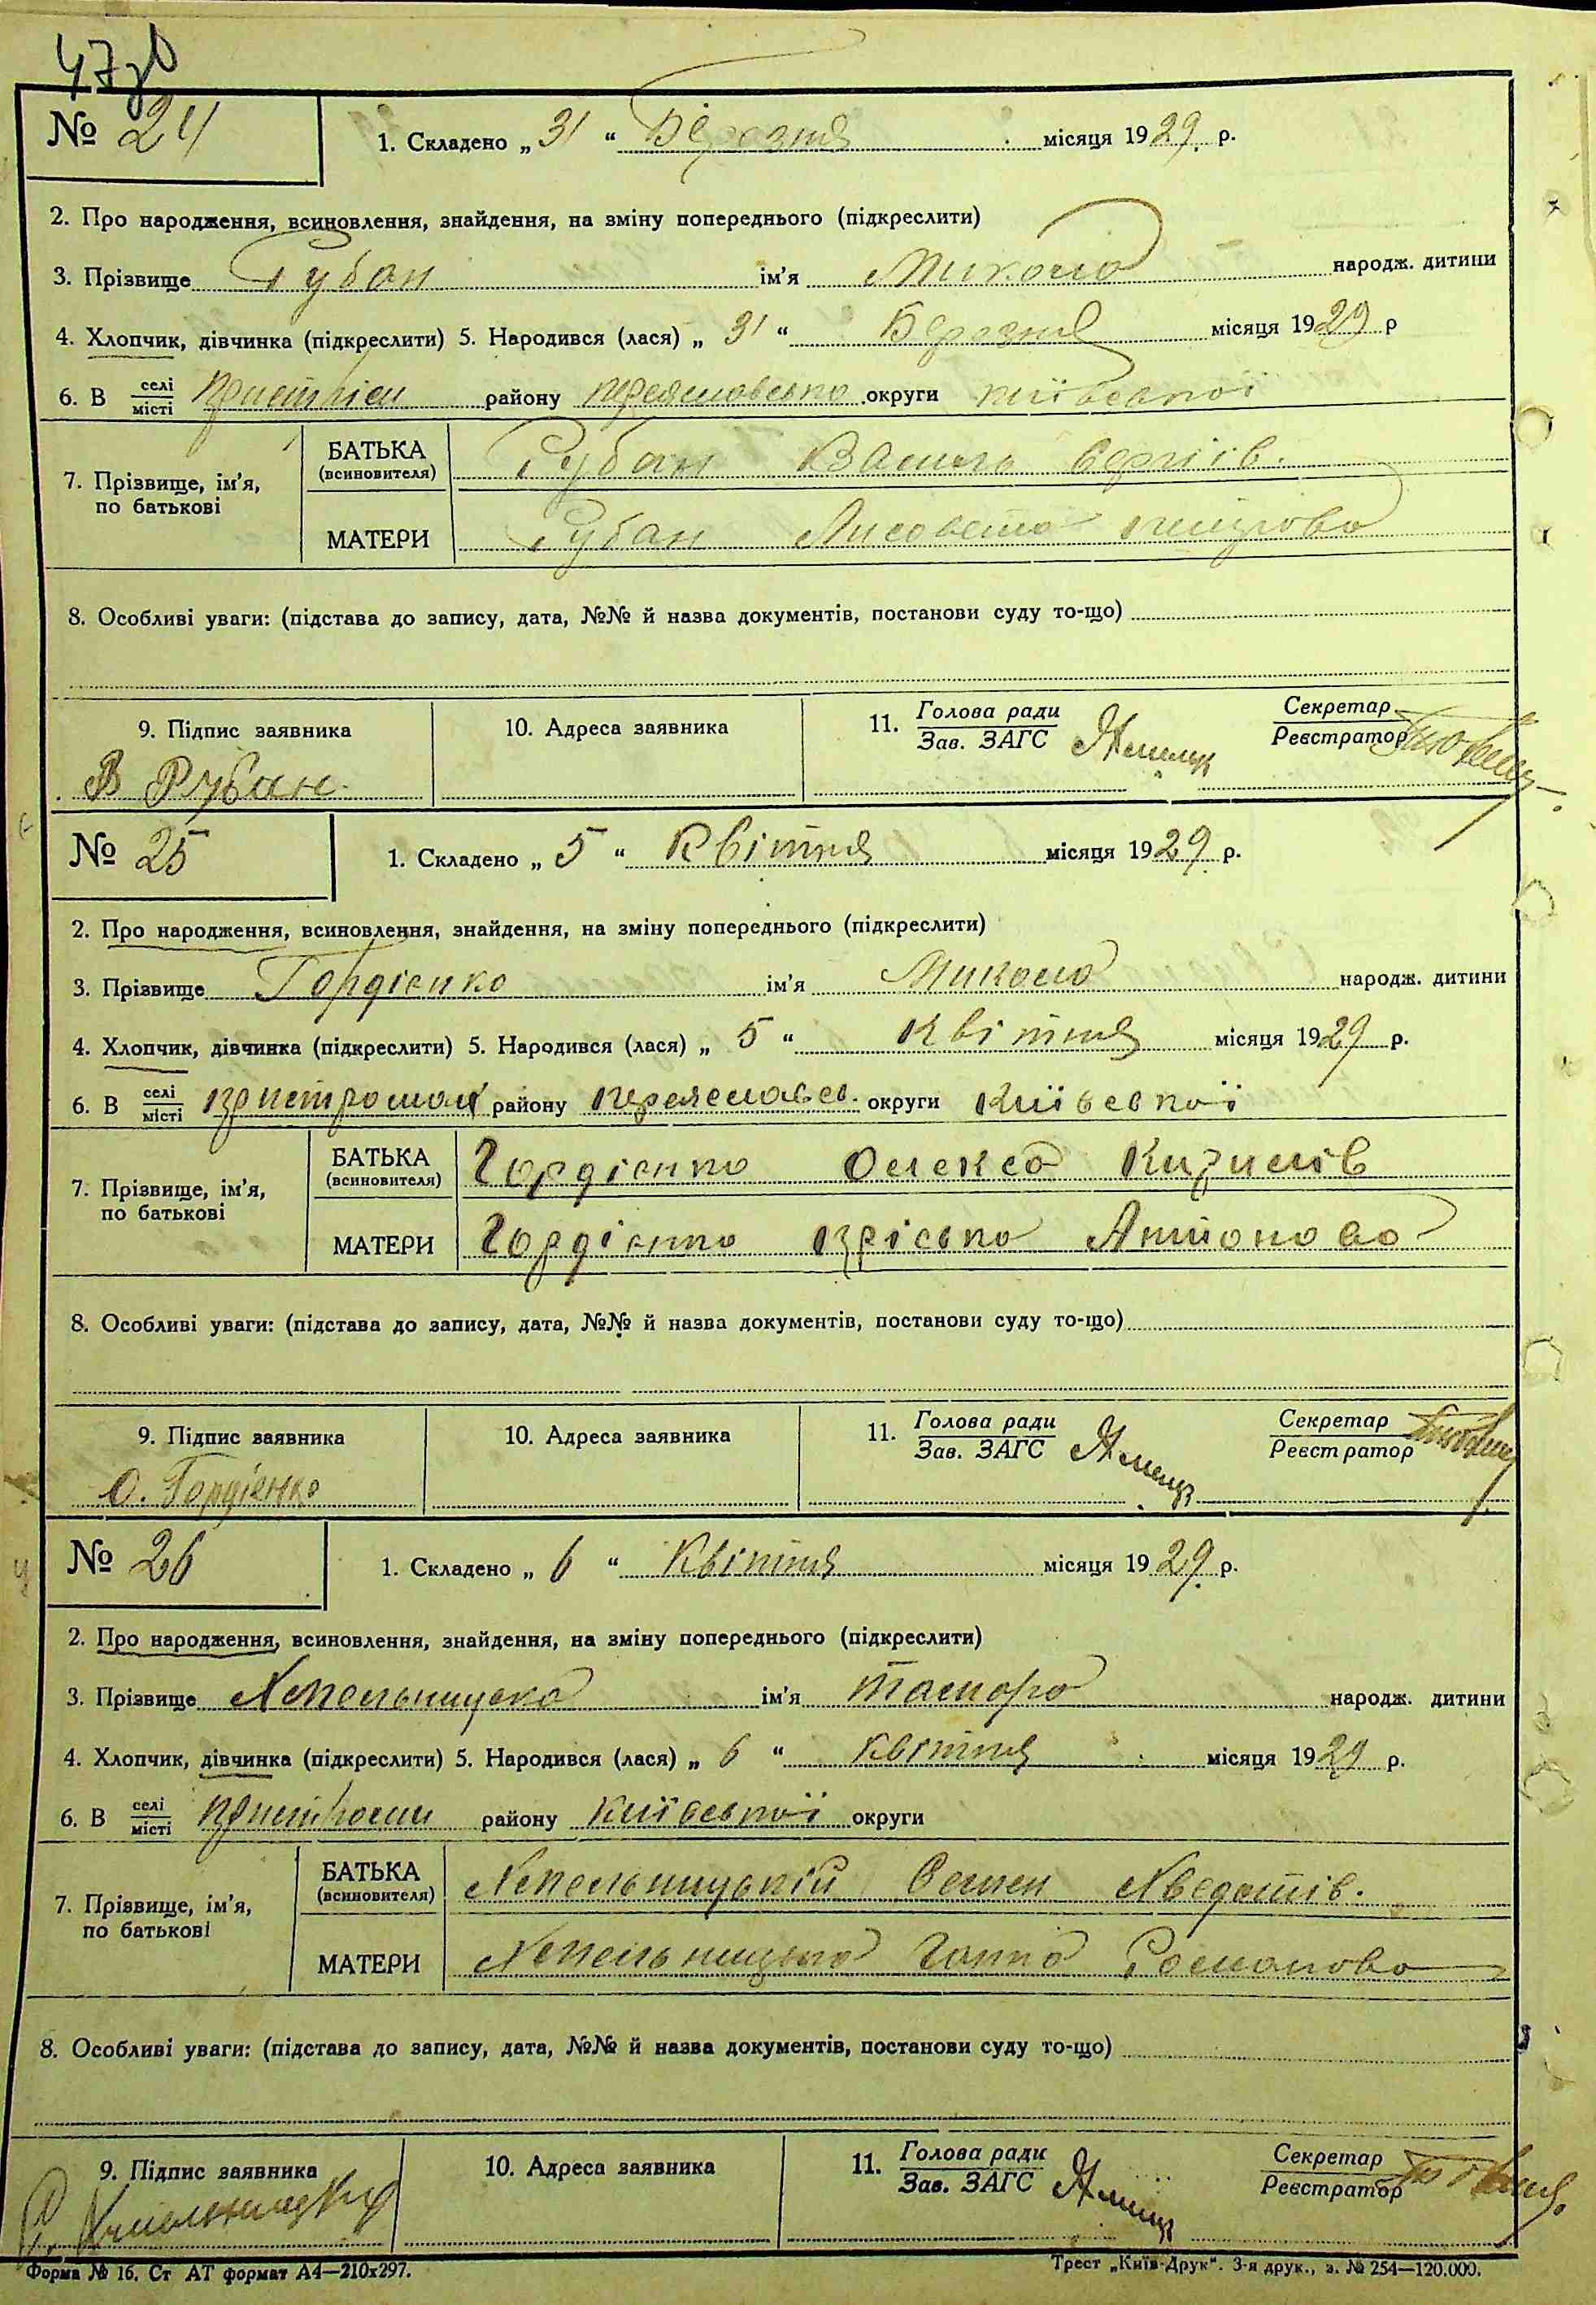 47зв
№ 24
1. Складено „ 31 “ Березня місяця 1929. р.
2. Про народження, всиновлення, знайдення, на зміну попереднього (підкреслити)
3. Прізвище Рубан ім'я Микола народж. дитини
4. Хлопчик, дівчинка (підкреслити) 5. Народився (лася) „ 31 “ Березня місяця 1929 р
6. В селі/місті району округи Київської
7. Прізвище, ім'я, по батькові
БАТЬКА (всиновителя) Рубан Василь
МАТЕРИ Рубан Лисовета Петрова
8. Особливі уваги: (підстава до запису, дата, №№ й назва документів, постанови суду то-що)
9. Підпис заявника
10. Адреса заявника
11. Голова ради/Зав. ЗАГС
Секретар/Реєстратор
В Рубан
№ 25
1. Складено „ 5 “ Квітня місяця 1929. р.
2. Про народження, всиновлення, знайдення, на зміну попереднього (підкреслити)
3. Прізвище Гордієнко ім'я Микола народж. дитини
4. Хлопчик, дівчинка (підкреслити) 5. Народився (лася) „ 5 “ Квітня місяця 1929 р.
6. В селі/місті району Переяславс. округи Київської
7. Прізвище, ім'я, по батькові
БАТЬКА (всиновителя) Гордієнко Олекса Кирилів
МАТЕРИ Гордієнко Пріська Антонова
8. Особливі уваги: (підстава до запису, дата, №№ й назва документів, постанови суду то-що)
9. Підпис заявника
10. Адреса заявника
11. Голова ради/Зав. ЗАГС
Секретар/Реєстратор
О. Гордієнко
№ 26
1. Складено „ 6 “ Квітня місяця 1929. р.
2. Про народження, всиновлення, знайдення, на зміну попереднього (підкреслити)
3. Прізвище Хмельницька ім'я Тамара народж. дитини
4. Хлопчик, дівчинка (підкреслити) 5. Народився (лася) „ 6 “ Квітня місяця 1929 р.
6. В селі/місті району Київської округи
7. Прізвище, ім'я, по батькові
БАТЬКА (всиновителя) Хмельницький Семен
МАТЕРИ Хмельницька Ганна Романова
8. Особливі уваги: (підстава до запису, дата, №№ й назва документів, постанови суду то-що)
9. Підпис заявника
10. Адреса заявника
11. Голова ради/Зав. ЗАГС
Секретар/Реєстратор
Форма № 16. Ст АТ формат А4—210х297.
Трест „Київ-Друк“. 3-я друк., з. № 254—120.000.